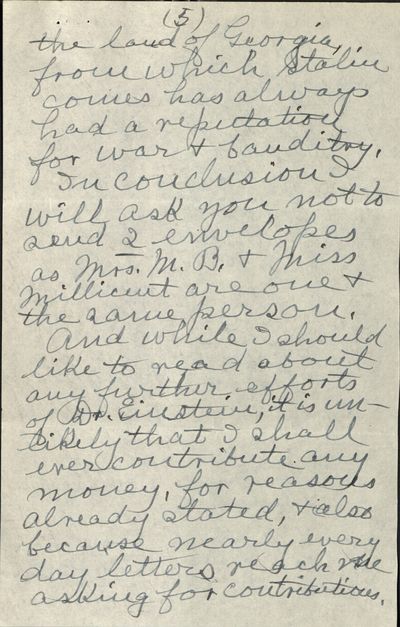 (5)
the land of Georgia,
from which Stalin
comes has always
had a reputation
for war & banditry.
In conclusion I
will ask you not to
send 2 envelopes
as Mrs. M. B. & Miss
Millicent are one &
the same person.
And while I should
like to read about
any further efforts
of Dr. Einstein, it is un-
likely that I shall
ever contribute any
money, for reasons
already stated, & also
because nearly every
day letters reach me
asking for contributions.